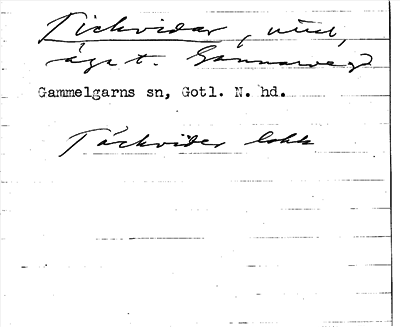 Tickvidar, und,
ägt. Gannarve
Gammelgarns sn, Gotl. N. hd.
Täckvider